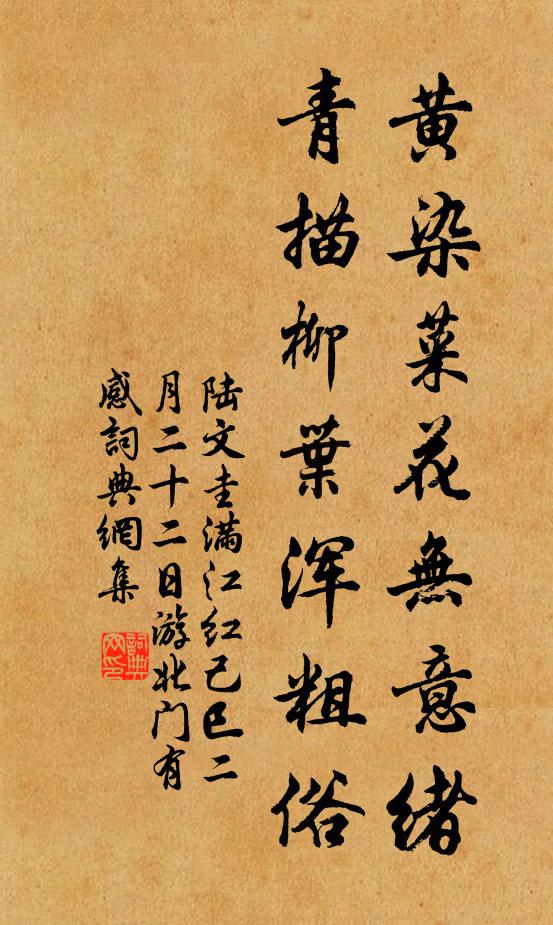 黄染菜花無意緒
青描柳葉浑粗俗
陆文圭满江红己巳二
月二十二日游北门有
感詞典網集
詞典網印